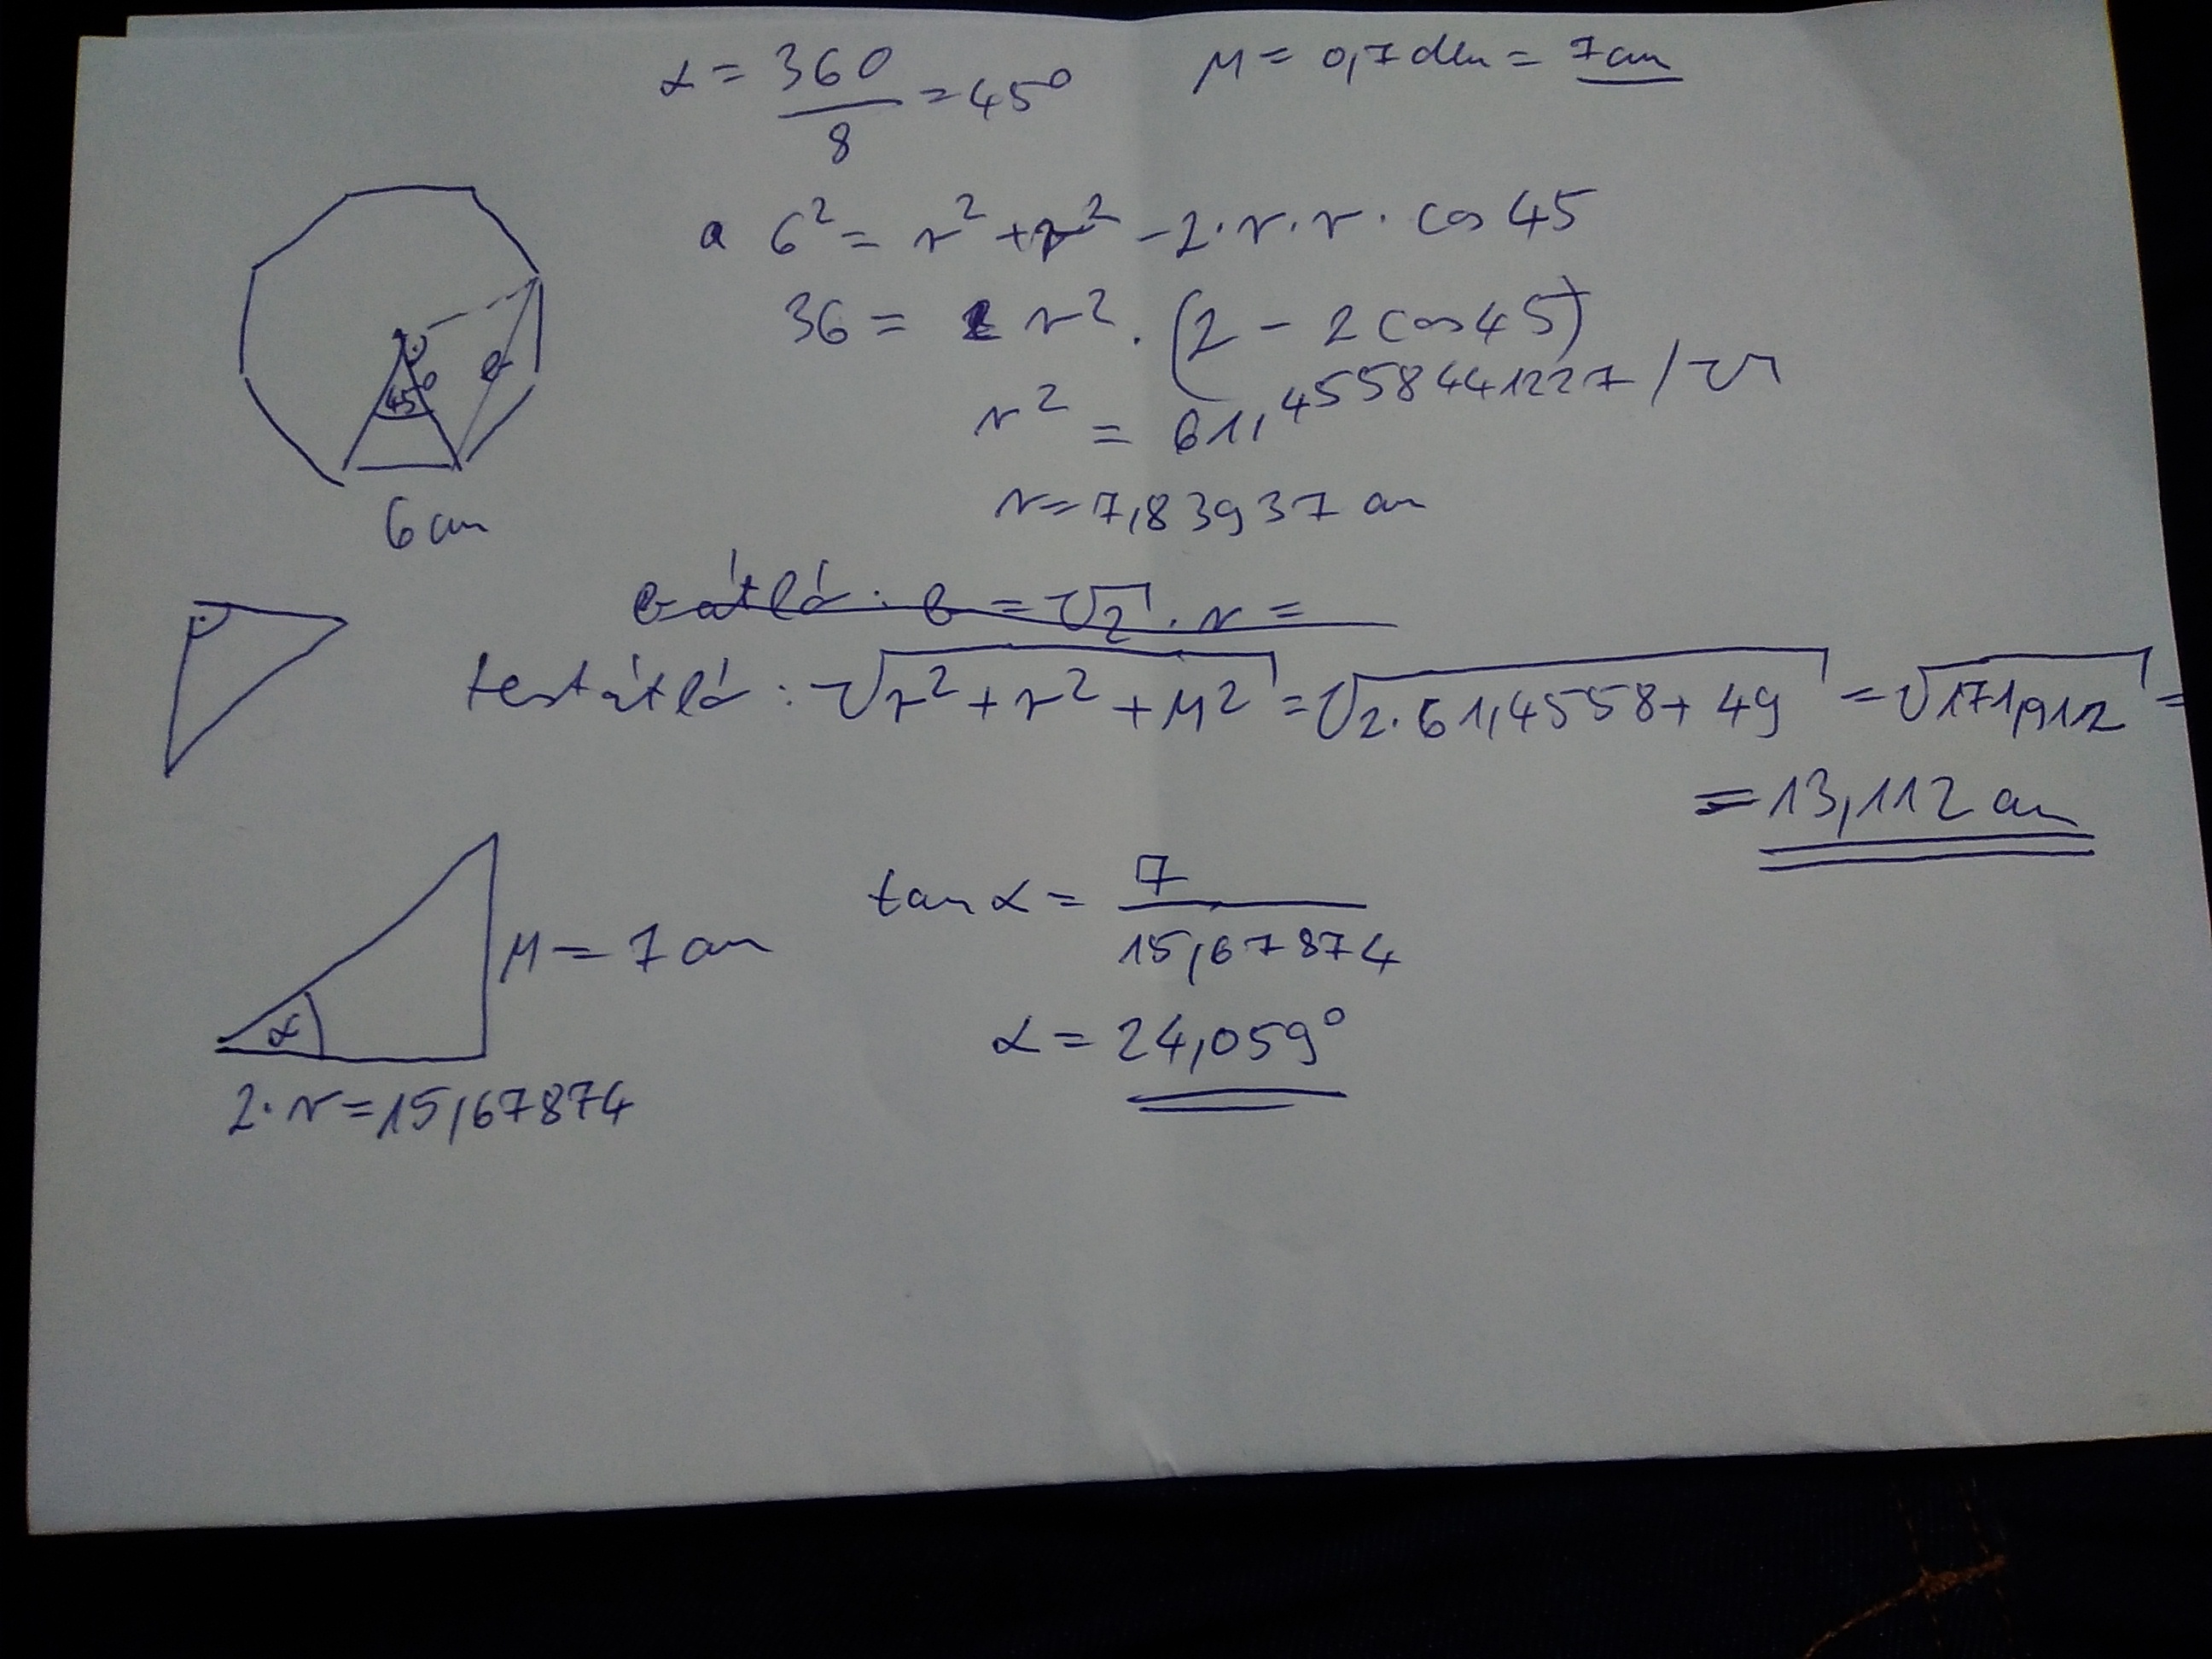 α = 360/8 = 45°
M = 0,7 dm = 7cm
a 6² = r² + r² - 2·r·r·cos 45
36 = r² · (2 - 2cos45)
45°
e
r² = 61,4558441227 /√
6 cm
r = 7,83937 cm
e átló: e = √2 · r =
testátló: √r² + r² + M² = √2·61,4558 + 49 = √171,912 =
= 13,112 cm
tan α = 7/15,67874
M = 7 cm
α
α = 24,059°
2·r = 15,67874